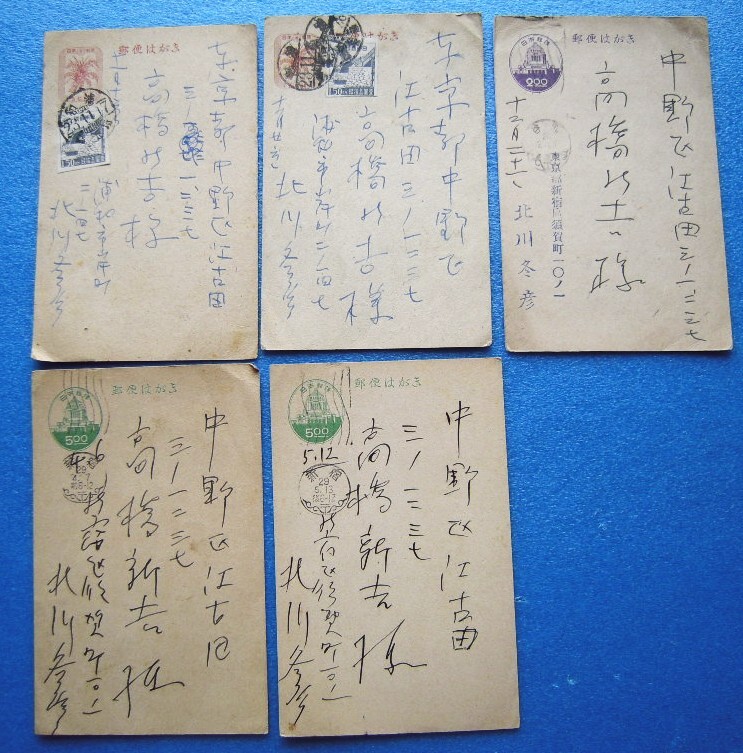 郵便はがき
東京都中野区江古田
三ノ一二三七
高橋新吉様
浦和市岸町
二ノ一四七
北川冬彦
郵便はがき
東京都中野区
江古田三ノ一二三七
高橋新吉様
浦和市岸町二ノ一四七
北川冬彦
郵便はがき
2.00
中野区江古田三ノ一二三七
高橋新吉様
東京都新宿区須賀町一〇ノ一
北川冬彦
郵便はがき
5.00
中野区江古田
三ノ一二三七
高橋新吉様
新宿区須賀町一〇ノ一
北川冬彦
郵便はがき
5.00
5.12
中野区江古田
三ノ一二三七
高橋新吉様
新宿区須賀町一〇ノ一
北川冬彦